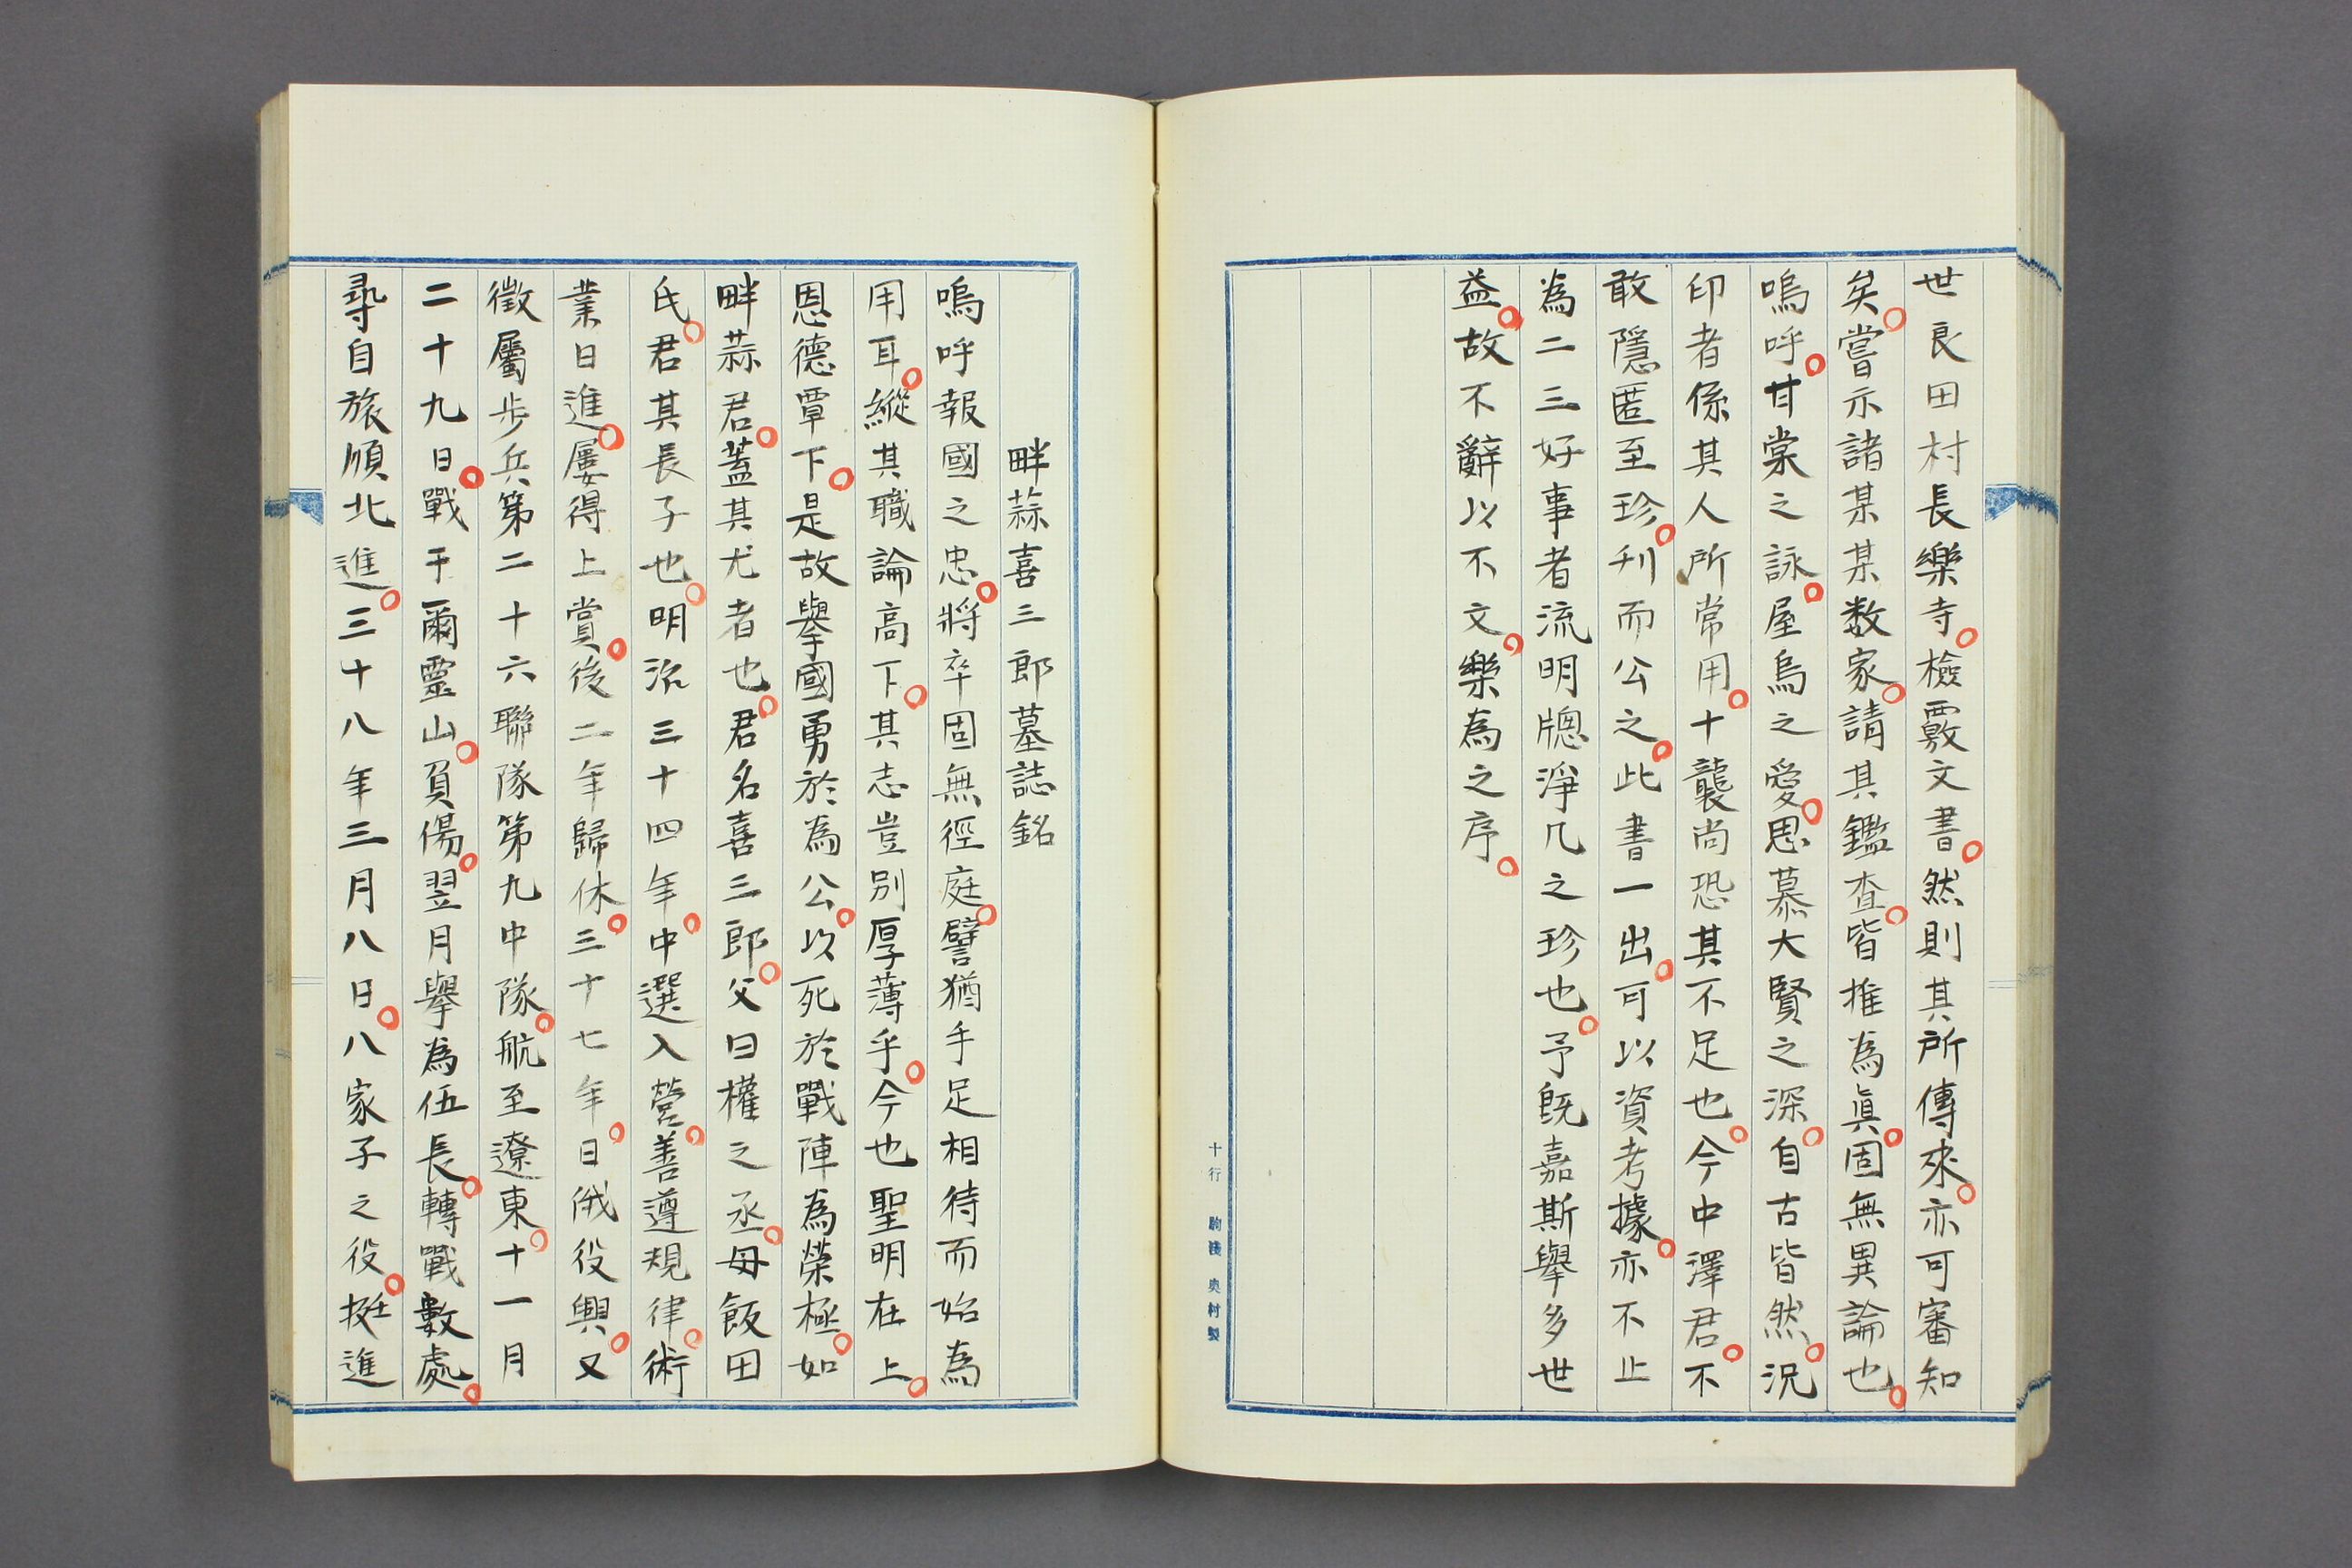 世良田村長樂寺。檢覈文書。然則其所傳來。亦可審知
矣。嘗示諸某某数家。請其鑑査。皆推為眞。固無異論也。
嗚呼。甘棠之詠。屋烏之愛。思慕大賢之深。自古皆然。況
印者係其人所常用。十襲尚恐其不足也。今中澤君。不
敢隱匿至珍。刊而公之。此書一出。可以資考據。亦不止
為二三好事者流明牕淨几之珍也。予既嘉斯舉多世
益。故不辭以不文。樂為之序。
十行 駒込 奥村製
畔蒜喜三郎墓誌銘
嗚呼報國之忠。將卒固無徑庭。譬猶手足相待而始為
用耳。縱其職論高下。其志豈別厚薄乎。今也聖明在上。
恩德覃下。是故擧國勇於為公。以死於戰陣為榮極。如
畔蒜君。蓋其尤者也。君名喜三郎。父曰權之丞。母飯田
氏。君其長子也。明治三十四年。中選入營。善遵規律。術
業日進。屢得上賞。後二年歸休。三十七年。日俄役興。又
徵屬步兵第二十六聯隊第九中隊。航至遼東。十一月
二十九日。戰于爾靈山。負傷。翌月擧為伍長。轉戰數處。
尋自旅順北進。三十八年三月八日。八家子之役。挺進